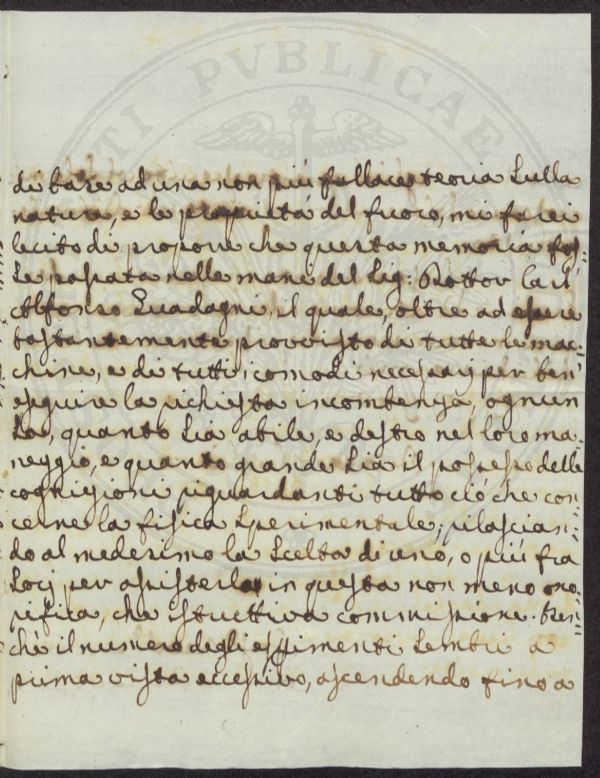 di base ad una non più fallace teoria sulla
natura, e le proprietà del fuoco, mi farei
lecito di proporre che questa memoria fos=
se passata nelle mani del Sig: Dottor Carl'
Alfonso Guadagni, il quale, oltre ad essere
bastantemente provvisto di tutte le mac=
chine, e di tutti i comodi necessarj per ben'
eseguire la richiesta incombenza, ognun
sa, quanto sia abile, e destro nel loro ma=
neggio, e quanto grande sia il possesso delle
cognizioni riguardanti tutto ciò che con=
cerne la fisica sperimentale; rilascian=
do al medesimo la scelta di uno, o più fra
Socj per assisterlo in questa non meno ono=
rifica, che istruttiva commissione. Ben=
chè il numero degli esperimenti sembri a
prima vista eccessivo, ascendendo fino a
PVBLICAE